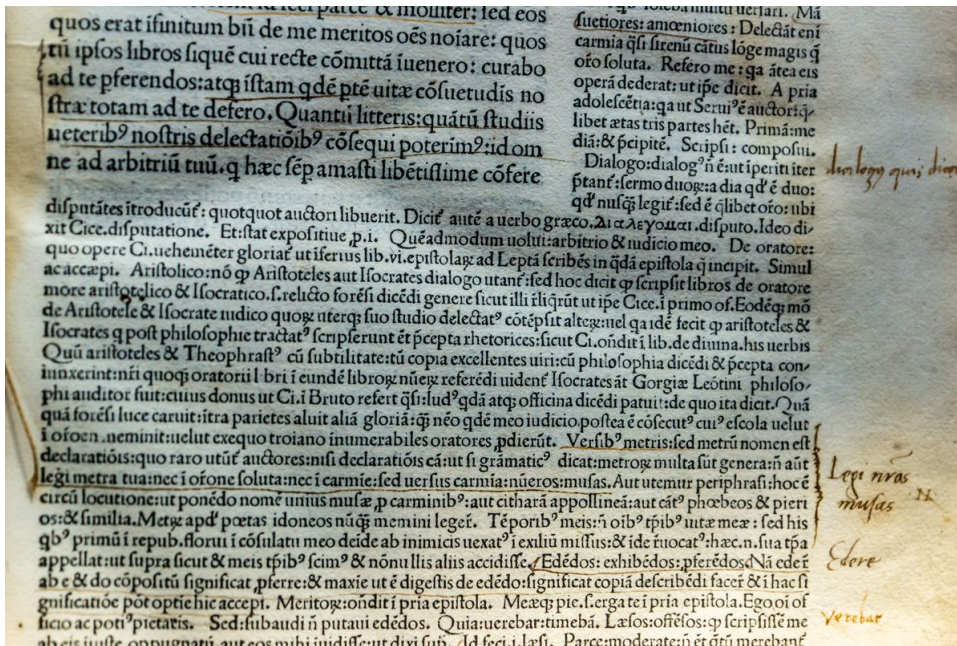 quos erat ifinitum biī de me meritos oēs noiare: quos
tū ipsos libros siquē cui recte cōmittā iuenero: curabo
ad te pferendos:atqꝫ istam qdē ptē uitæ cōsuetudis no
stræ totam ad te defero. Quantū litteris:quātū studiis
ueteribꝰ nostris delectatiōibꝰ cōsequi poterimꝰ:id om
ne ad arbitriū tuū.q hæc sēp amasti libētissime cōfere
suetiores: amœniores: Delectāt eni
carmia q̄si sirenū cātus lōge magis q̄
orō soluta. Refero me: qa ātea eis
operā dederat: ut ipe dicit. A pria
adolescētia:qa ut Seruiꝰē auctor:
libet ætas tris partes hēt. Primā:me
diā:& p̄cipitē. Scripsi: composui.
Dialogo:dialogꝰ n̄ ē:ut iperiti iter
p̄tant:sermo duoꝝ:a dia qd' ē duo:
qd' nusq̄ legit:sed ē qlibet orō: ubi
disputātes ītroducūt: quotquot auctori libuerit. Dicit autē a uerbo græco.διαλεγομαι.disputo.Ideo di
xit Cice.disputatione. Et:stat expositiue ,p.i. Quēadmodum uolui:arbitrio & iudicio meo. De oratore:
quo opere Ci.uehemēter gloriat ut iferius lib.vi.epistolaꝝ ad Leptā scribēs in qdā epistola q̄ incipit. Simul
ac accæpi. Aristolico:nō ꝙ Aristoteles aut Isocrates dialogo utant:sed hoc dicit ꝙ scripsit libros de oratore
more aristotelico & Isocratico.s.relicto forēsi dicēdi genere sicut illi īliq̄rūt ut ipe Cice.ī primo of.Eodēqꝫ mō
de Aristotele & Isocrate iudico quoꝝ uterqꝫ suo studio delectatꝰ cōtēpsit alteꝝ:uel qa idē fecit ꝙ aristoteles &
Isocrates q post philosophie tractatꝰ scripserunt ēt p̄cepta rhetorices:sicut Ci.oñdit ī lib.de diuina.his uerbis
Quū aristoteles & Theophrastꝰ cū subtilitate:tū copia excellentes uiri:cū philosophia dicēdi & p̄cepta con
iunxerint:nr̄i quoqꝫ oratorii l bri ī eundē libroꝝ nūeꝝ referēdi uident Isocrates āt Gorgiæ Leōtini philoso
phi auditor fuit:cuius donus ut Ci.ī Bruto refert q̄si:ludꝰqdā atqꝫ officina dicēdi patuit:de quo ita dicit.Quā
quā forēsi luce caruit:ītra parietes aluit aliā gloriā:q̄ nēo qdē meo iudicio,postea ē cōsecutꝰ cuiꝰ escola uelut
ī ofoen .neminit:uelut exequo troiano inumerabiles oratores ,pdierūt. Versibꝰ metris:sed metrū nomen est
declaratiōis:quo raro utūt auctores:nisi declaratiōis cā:ut si grāmaticꝰ dicat:metroꝝ multa sūt genera:n̄ aūt
legi metra tua:nec ī orōne soluta:nec ī carmie:sed uersus carmia:nūeros:musas.Aut utemur periphrasi:hoc ē
circū locutione:ut ponēdo nomē unius musæ ,p carminibꝰ:aut citharā appollineā:aut cātꝰ phœbeos & pieri
os:& similia.Metꝝ apd' poetas idoneos nūq̄ memini leger. Tēporibꝰ meis:n̄ oībꝰ tp̄ibꝰ uitæ meæ : sed his
qbꝰ primū ī repub.florui ī cōsulatu meo deīde ab inimicis uexatꝰ ī exiliū missus:& īde ruocatꝰ:hæc.n.sua tp̄a
appellat:ut supra sicut & meis tp̄ibꝰ scimꝰ & nōnullis aliis accidisse. Edēdos: exhibēdos:pferēdos Nā eder
ab e & do cōpositū significat ,pferre:& maxie ut ē digestis de edēdo:significat copiā describēdi facer & ī hac si
gnificatiōe pōt optie hic accepi. Meritoꝝ:oñdit ī pria epistola. Meæqꝫ pie.s.erga te ī pria epistola.Ego oī of
ficio ac potiꝰ pietatis. Sed:subaudi n̄ putaui edēdos. Quia:uerebar:timebā. Læsos:offēsos:ꝙ scripsisse me
dialogꝰ quis dicat
Lepi nr̄as
musas
Edere
verebar